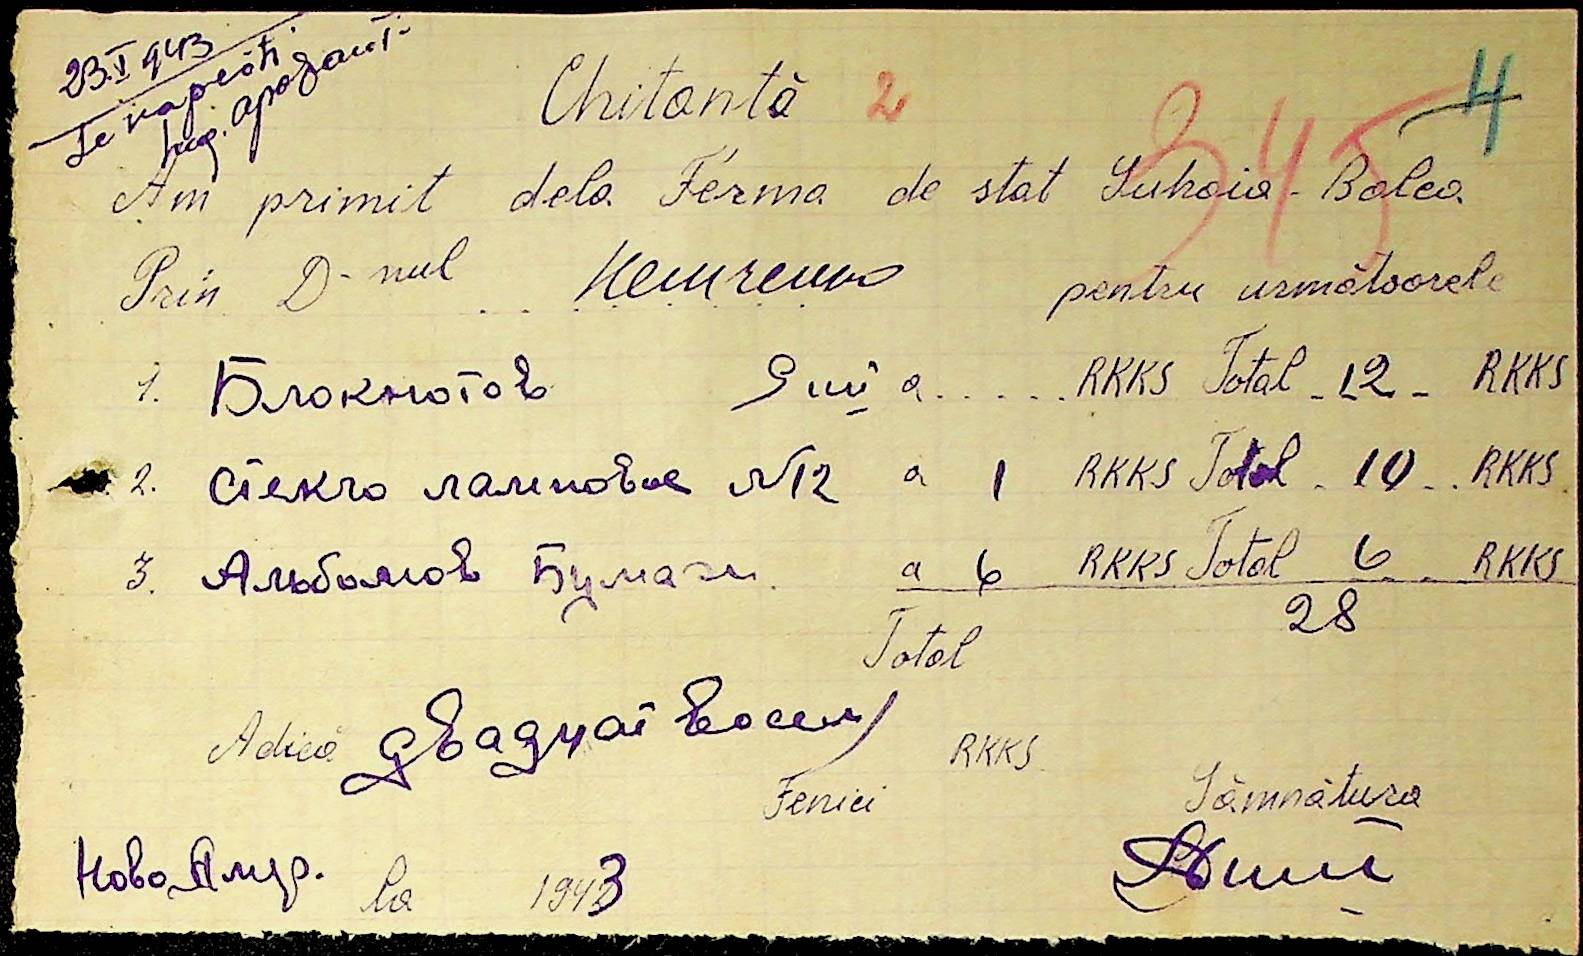 23.I 943
Chitantă 2
345
4
Am primit dela Ferma de stat Suhaia-Balca
Prin D-nul Немченко pentru următoarele
1. Блокнотов a..... RKKS Total - 12 - RKKS
2. Стекло ламповое N12 a 1 RKKS Total - 10 .. RKKS
3. Альбомов Бумаги a 6 RKKS Total 6 .. RKKS
28
Total
Adică двадцат восем RKKS
Fenici Sămnătura
Ново la 1943